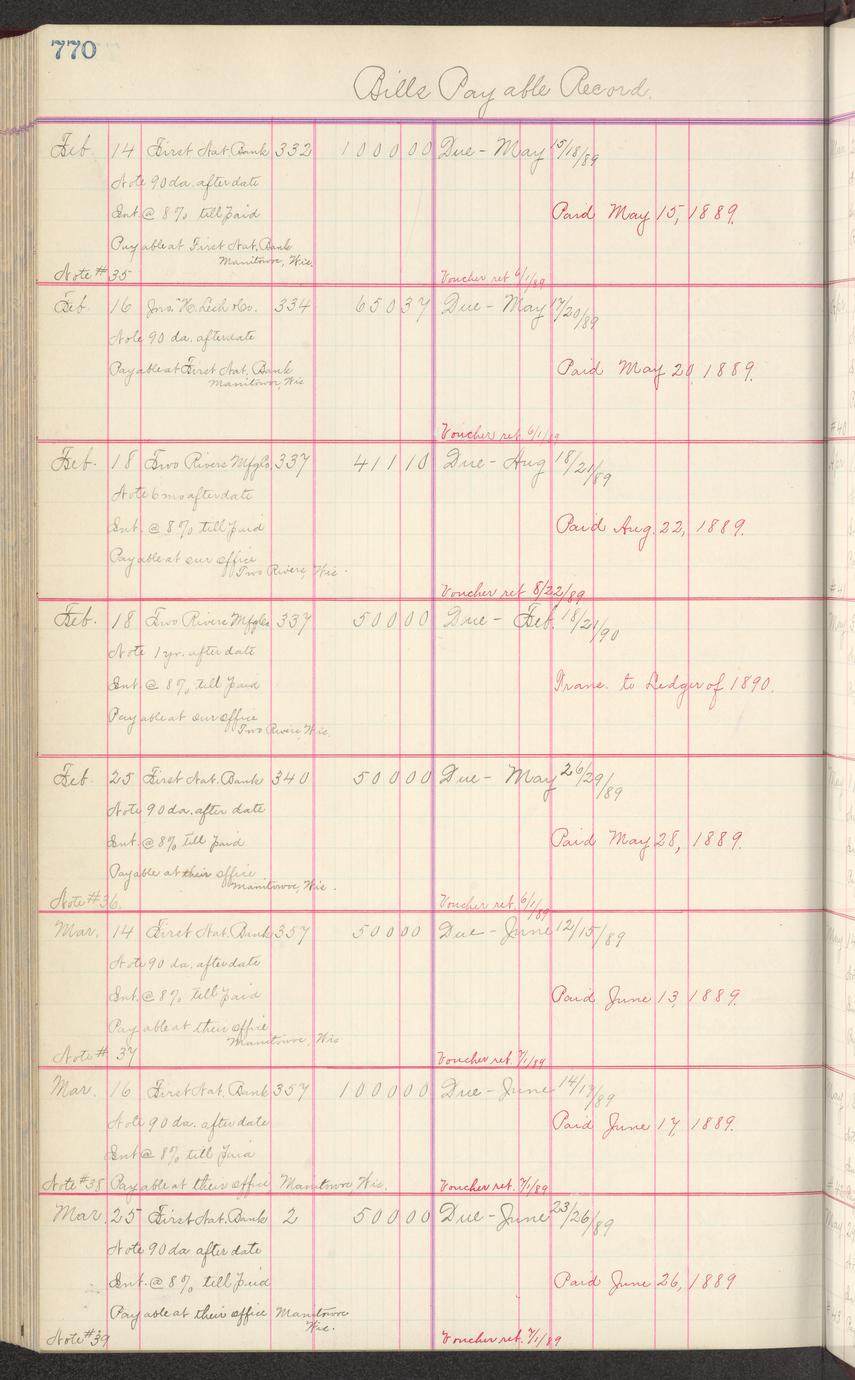 770
Bills Payable Record.
Feb. 14 First Nat. Bank 332 1 0 0 0 0 0 Due - May 15/18/89
Note 90 da. after date
Int. @ 8% till paid Paid May 15, 1889.
Payable at First Nat. Bank
Manitowoc, Wis.
Note # 35 Voucher ret 6/1/89
Feb 16 Jno. H. Leich & Co. 334 6 5 0 3 7 Due - May 17/20/89
Note 90 da. after date
Payable at First Nat. Bank Paid May 20, 1889.
Manitowoc, Wis
Voucher ret. 6/1/89
Feb. 18 Two Rivers Mfg Co 337 4 1 1 1 0 Due - Aug 18/21/89
Note 6 mo after date
Int. @ 8% till paid Paid Aug. 22, 1889.
Payable at our office
Two Rivers, Wis.
Voucher ret 8/22/89
Feb. 18 Two Rivers Mfg Co 337 5 0 0 0 0 Due - Feb. 18/21/90
Note 1 yr. after date
Int. @ 8% till paid Trans. to Ledger of 1890.
Payable at our office
Two Rivers, Wis.
Feb 25 First Nat. Bank 340 5 0 0 0 0 Due - May 26/29/89
Note 90 da. after date
Int. @ 8% till paid Paid May 28, 1889.
Payable at their office
Manitowoc, Wis.
Note # 36. Voucher ret. 6/1/89
Mar. 14 First Nat. Bank 357 5 0 0 0 0 Due - June 12/15/89
Note 90 da. after date
Int. @ 8% till paid Paid June 13, 1889.
Payable at their office
Manitowoc, Wis
Note # 37 Voucher ret. 7/1/89
Mar. 16 First Nat. Bank 357 1 0 0 0 0 0 Due - June 14/17/89
Note 90 da. after date Paid June 17, 1889.
Int @ 8% till paid
Note #38 Payable at their office Manitowoc Wis. Voucher ret. 7/1/89
Mar. 25 First Nat. Bank 2 5 0 0 0 0 Due - June 23/26/89
Note 90 da after date
Int. @ 8% till paid Paid June 26, 1889
Payable at their office Manitowoc
Wis.
Note #39 Voucher ret. 7/1/89